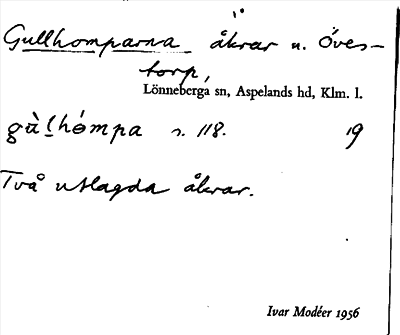 Gullhomparna åkrar u. Öves-
torp,
Lönneberga sn, Aspelands hd, Klm. l.
gu̇̀lhómpa s. 118. 19
Två utlagda åkrar.
Ivar Modéer 1956